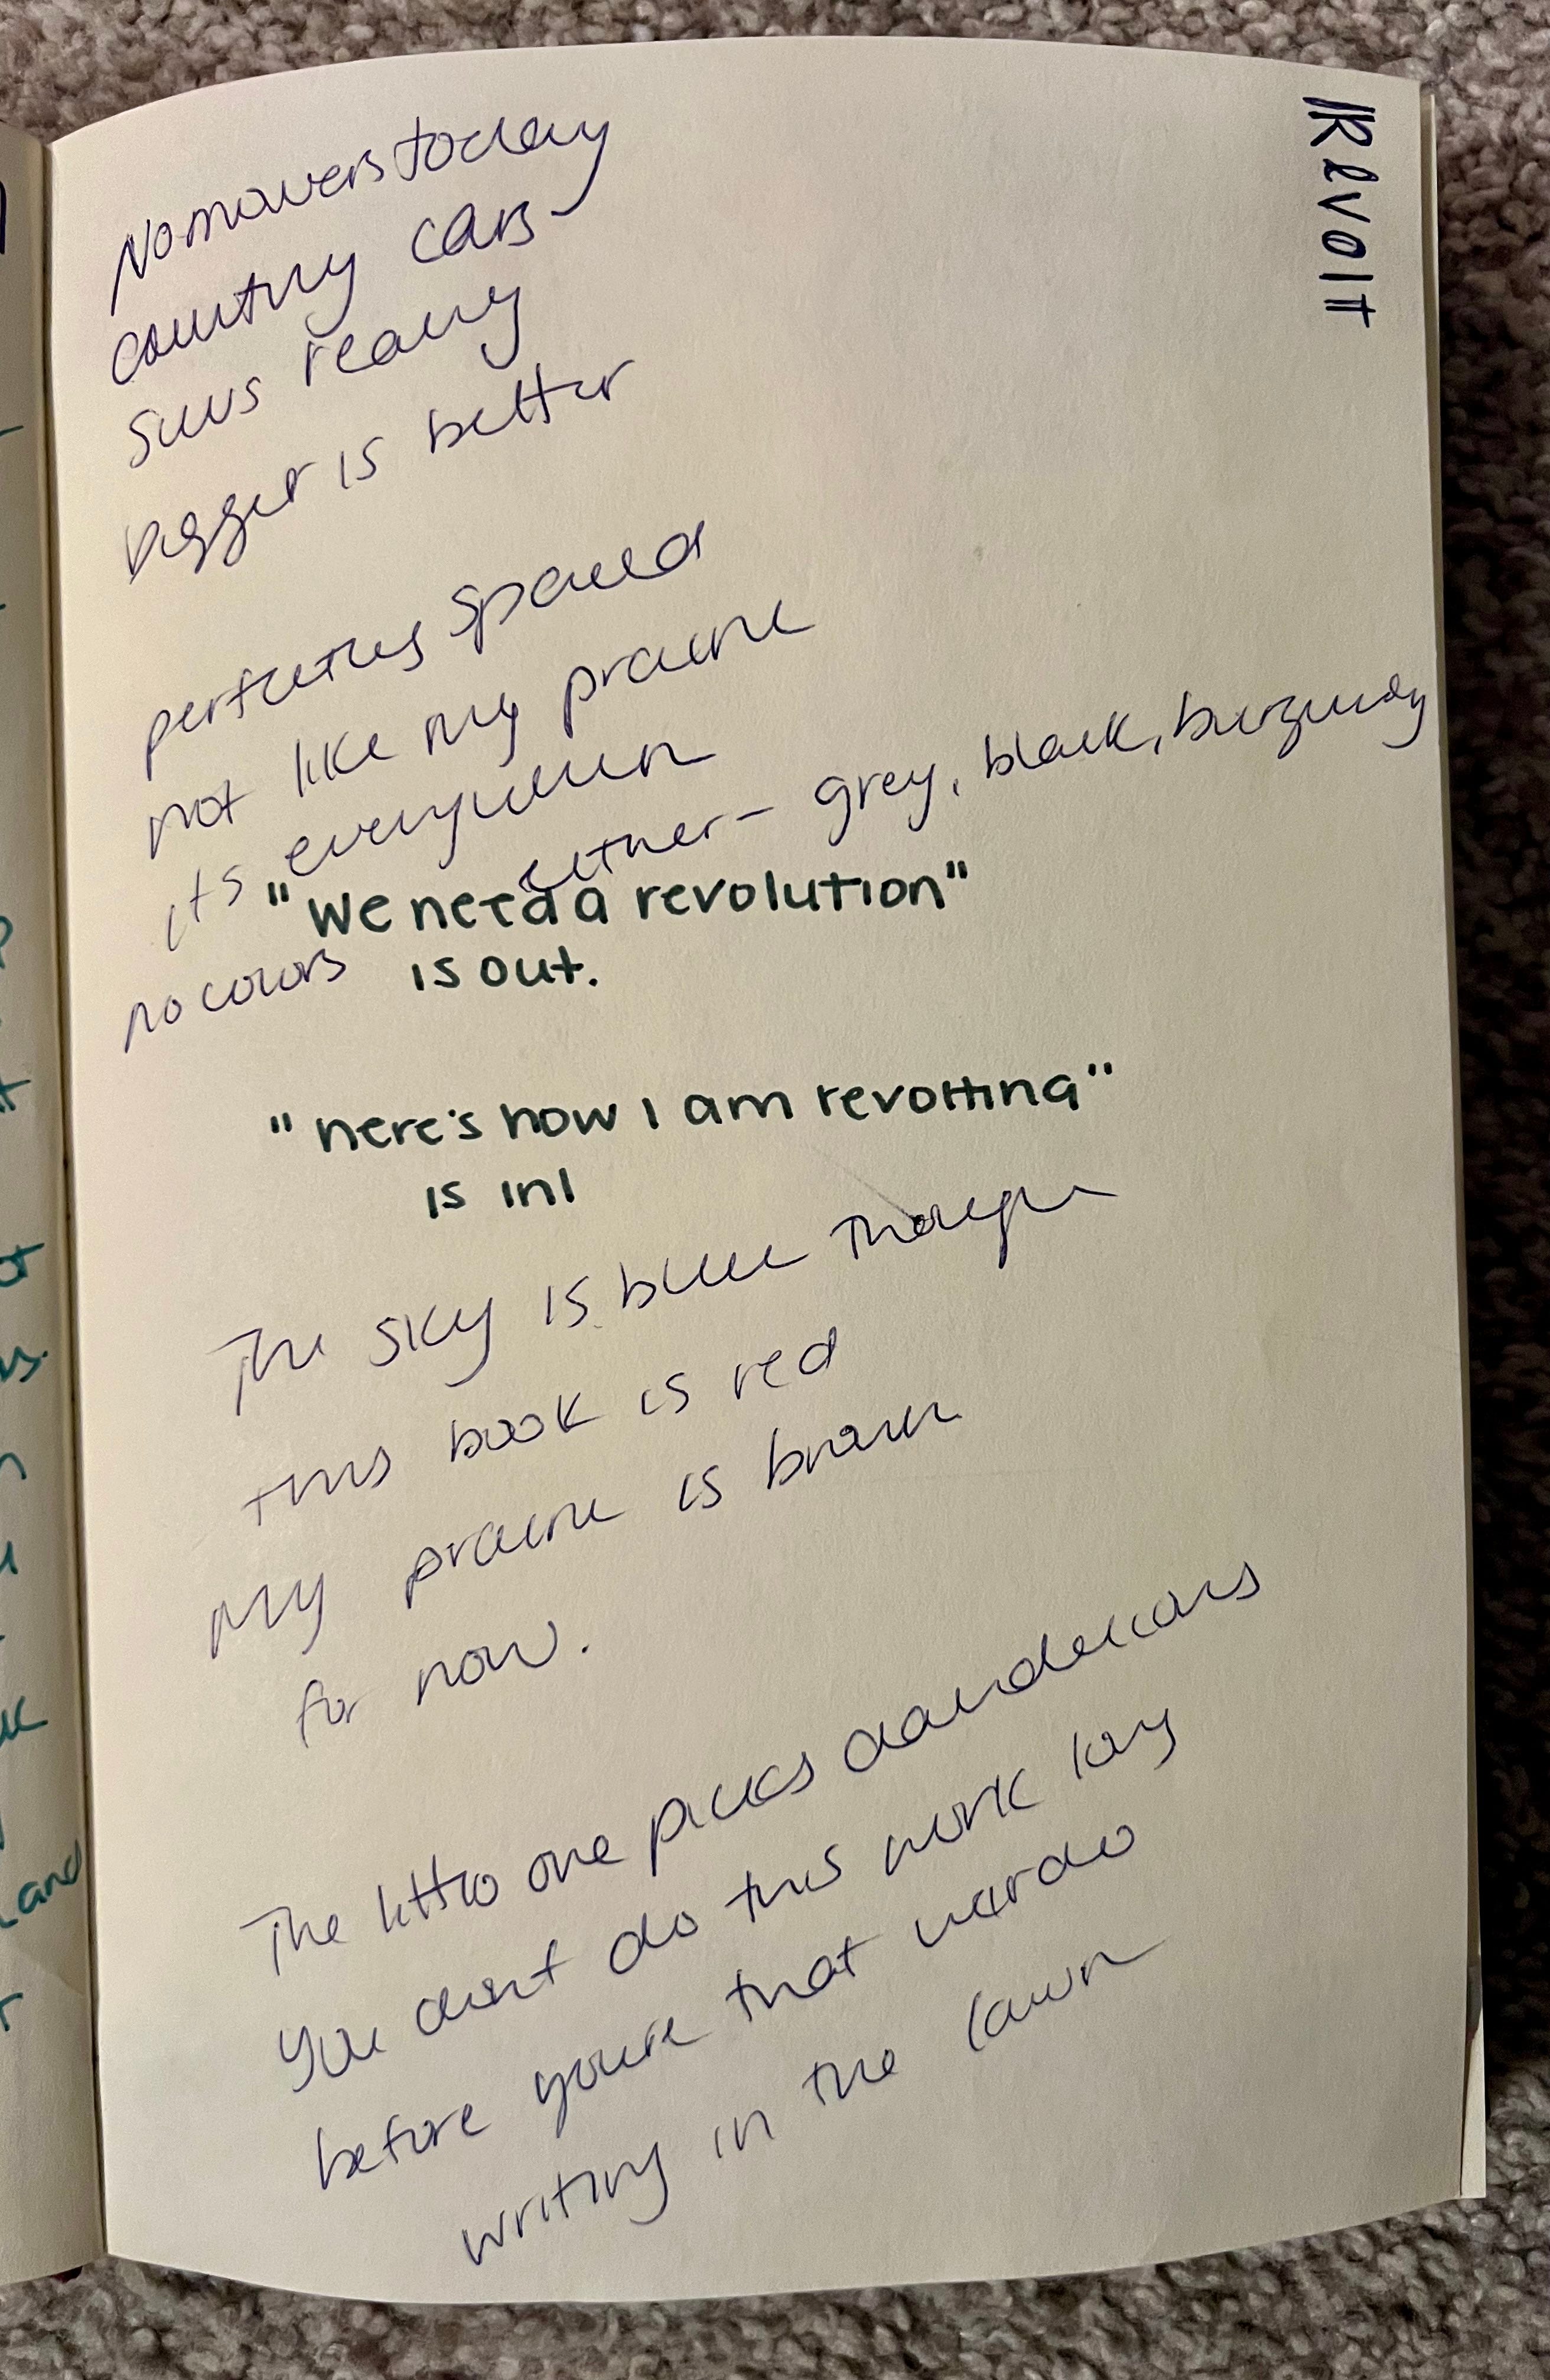 Revolt
No mowers today
counting cars
suvs really
bigger is better
perfectly spaced
not like my prairie
its everywhere
no colors either - grey, black, burgundy
"We need a revolution"
is out.
"here's how I am revolting"
is in!
The sky is blue though
this book is red
My prairie is brown
for now.
The little one picks dandelions
You don't do this work long
before you're that weirdo
writing in the lawn
and